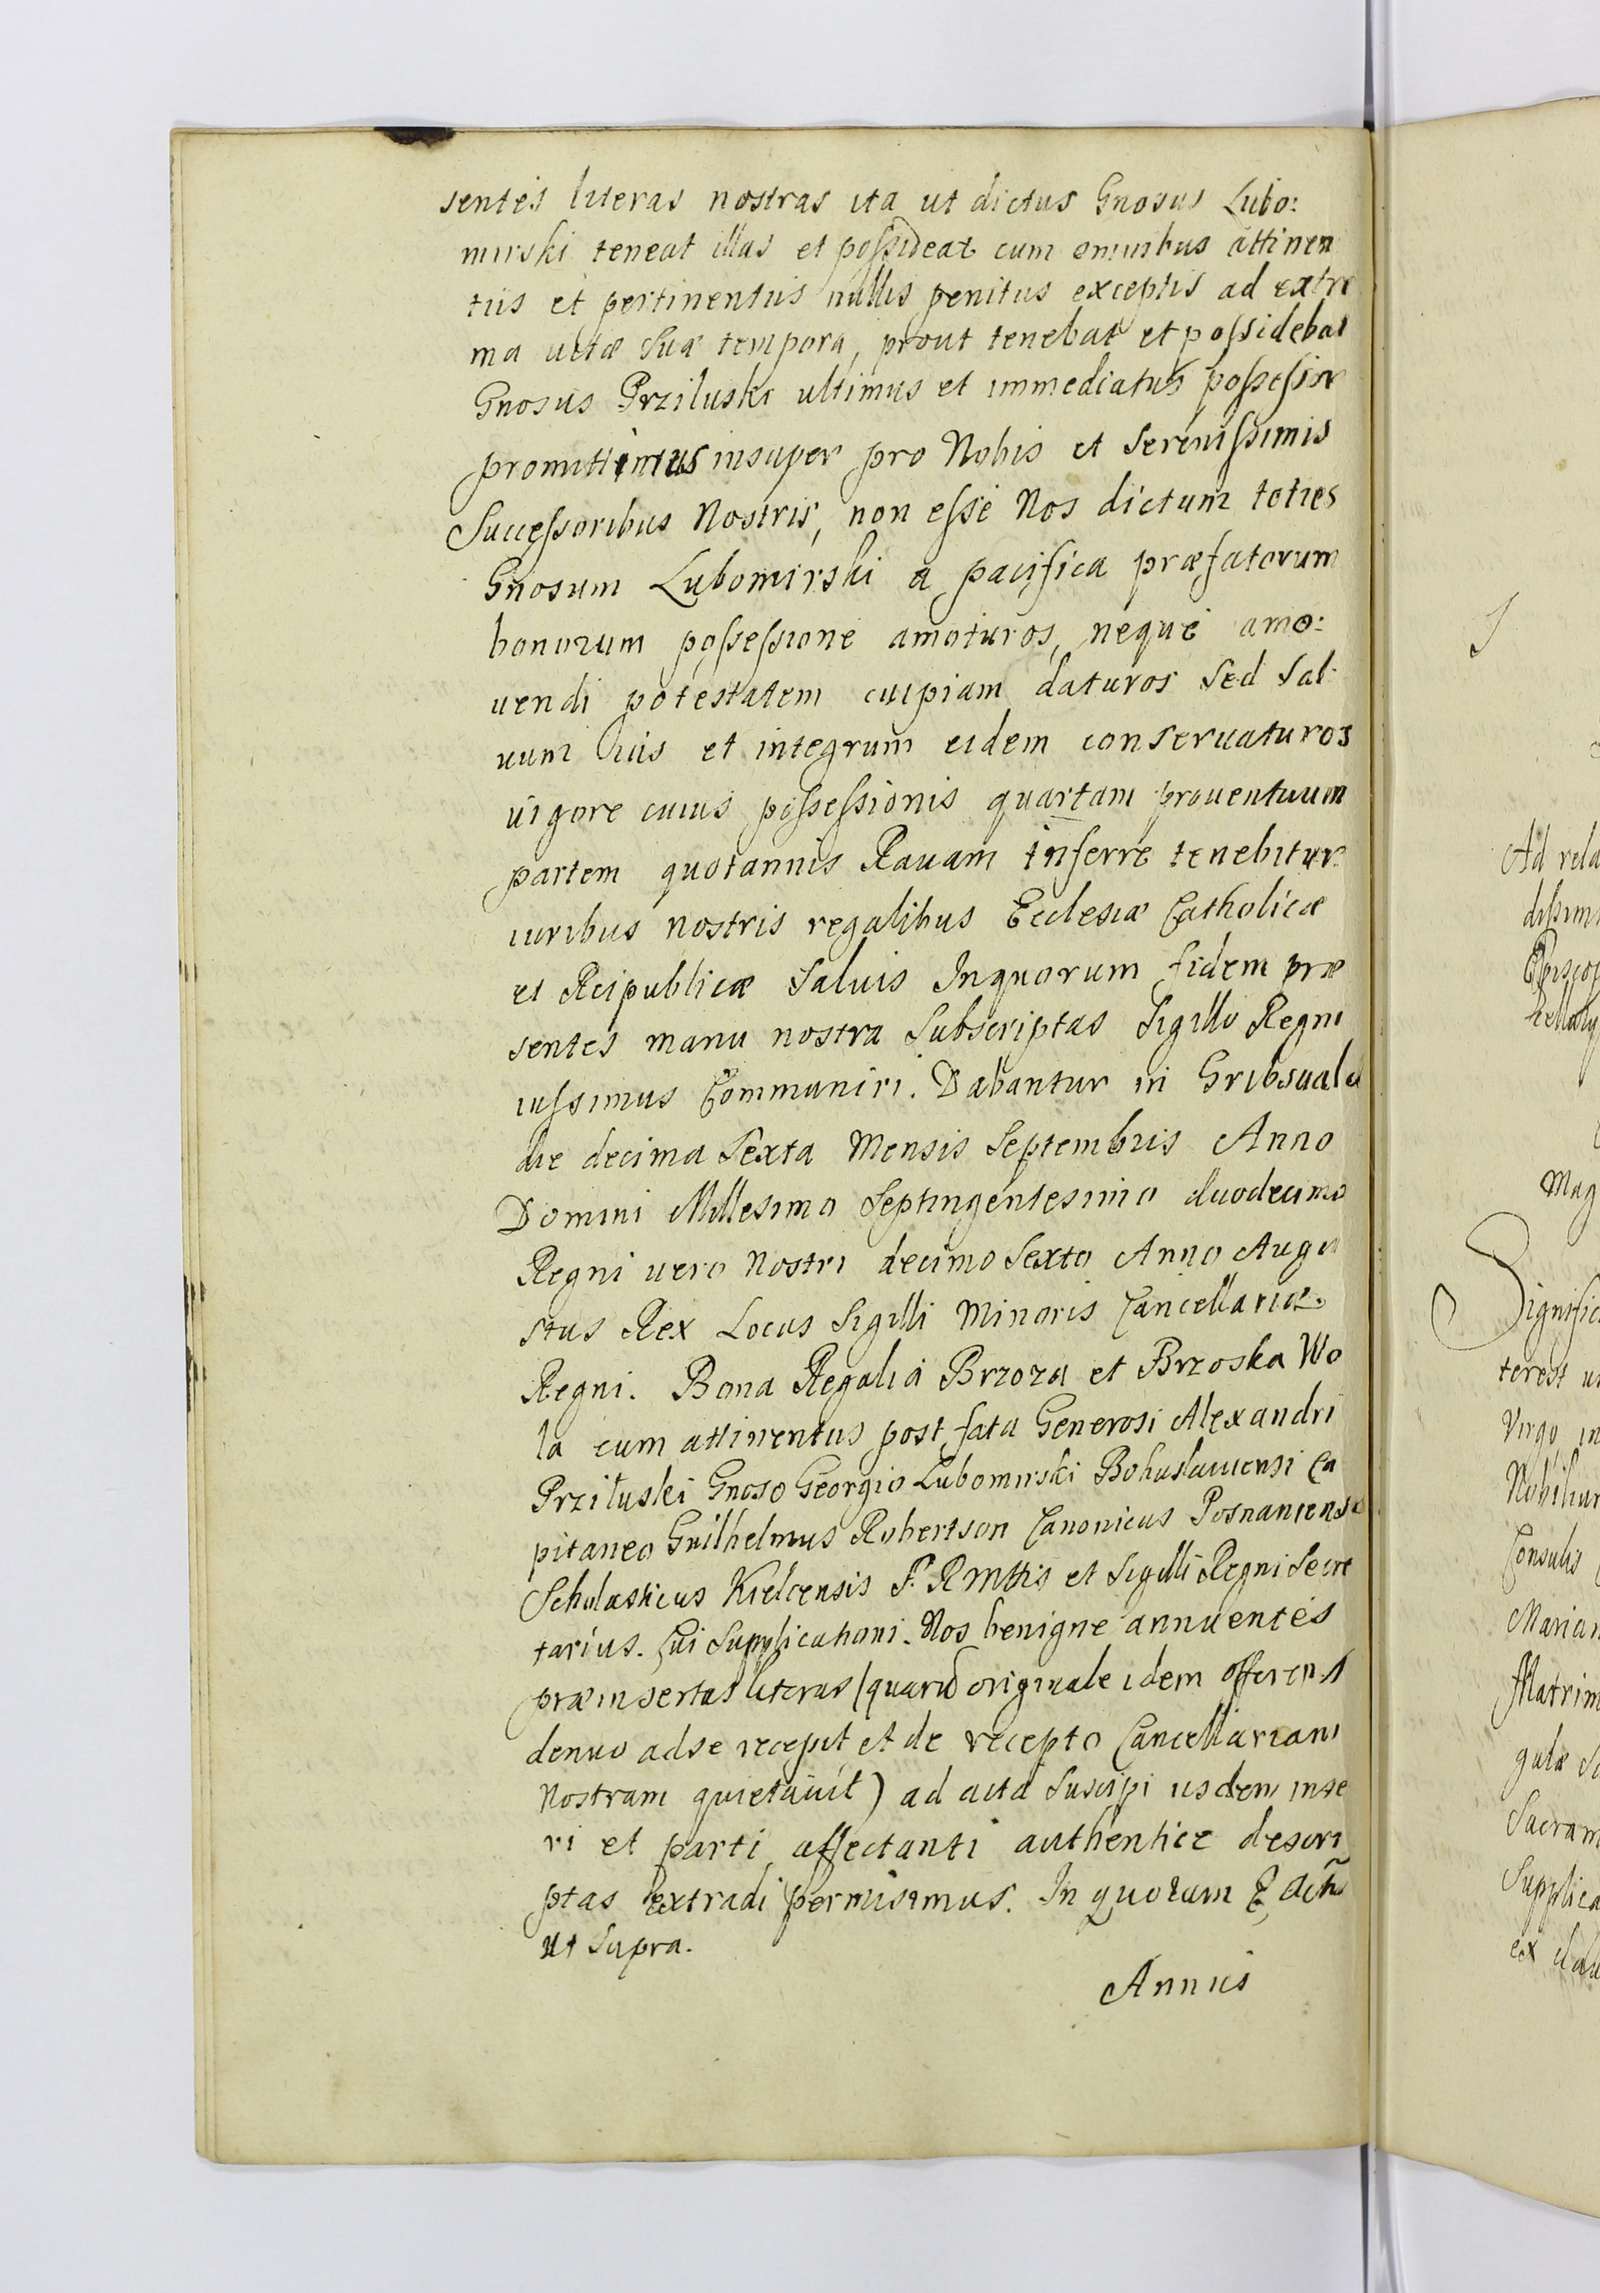 sentes literas nostras ita ut dictus Gnosus Lubo:
mirski teneat illas et possideat cum omnibus attinen
tiis et pertinentiis nullis penitus exceptis ad extre
ma uitæ suæ tempora, prout tenebat et possidebat
Gnosus Prziluski ultimus et immediatus possessor
promittimus insuper pro Nobis et Serenissimis
Successoribus Nostris, non esse Nos dictum toties
Gnosum Lubomirski a pacifica præfatorum
bonorum possessione amoturos, neque amo:
uendi potestatem cuipiam daturos sed sal
uum ius et integrum eidem conseruaturos
uigore cuius possessionis quartam prouentuum
partem quotannis Rauam inferre tenebitur
iuribus nostris regalibus Ecclesiæ Catholicæ
et Reipublicæ saluis Inquorum fidem præ
sentes manu nostra subscriptas Sigillo Regni
iussimus Communiri. Dabantur in Gribsuald
die decima sexta Mensis Septembris Anno
Domini Millesimo Septingentesimo duodecimo
Regni uero Nostri decimo sexto Anno Augu
stus Rex Locus Sigilli Minoris Cancellariæ
Regni. Bona Regalia Brzoza et Brzoska Wo
la cum attinentiis post fata Generosi Alexandri
Prziłuski Gnoso Georgio Lubomirski Bohuslauiensi Ca
pitaneo Guilhelmus Robertson Canonicus Posnaniensis
Scholasticus Kielcensis S. R. Mttis et Sigilli Regni Secre
tarius. Cui Supplicationi. Nos benigne annuentes
præinsertas literas (quarū originale idem offerens
denuo adse recepit et de recepto Cancellariam
Nostram quietauit) ad acta suscipi iisdem inse
ri et parti affectanti authentice descri
ptas extradi permisimus. In quorum
ut supra.
Annus
Ad rela
Episcop
Mag
Signific
terest
Virgo in
Nobilium
Consulis
Marian
Matrim
gulæ
Sacram
Supplica
ex